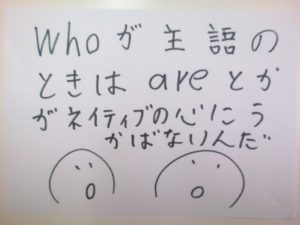 Whoが主語の
ときは areとか
がネイティブの心にう
かばないんだ